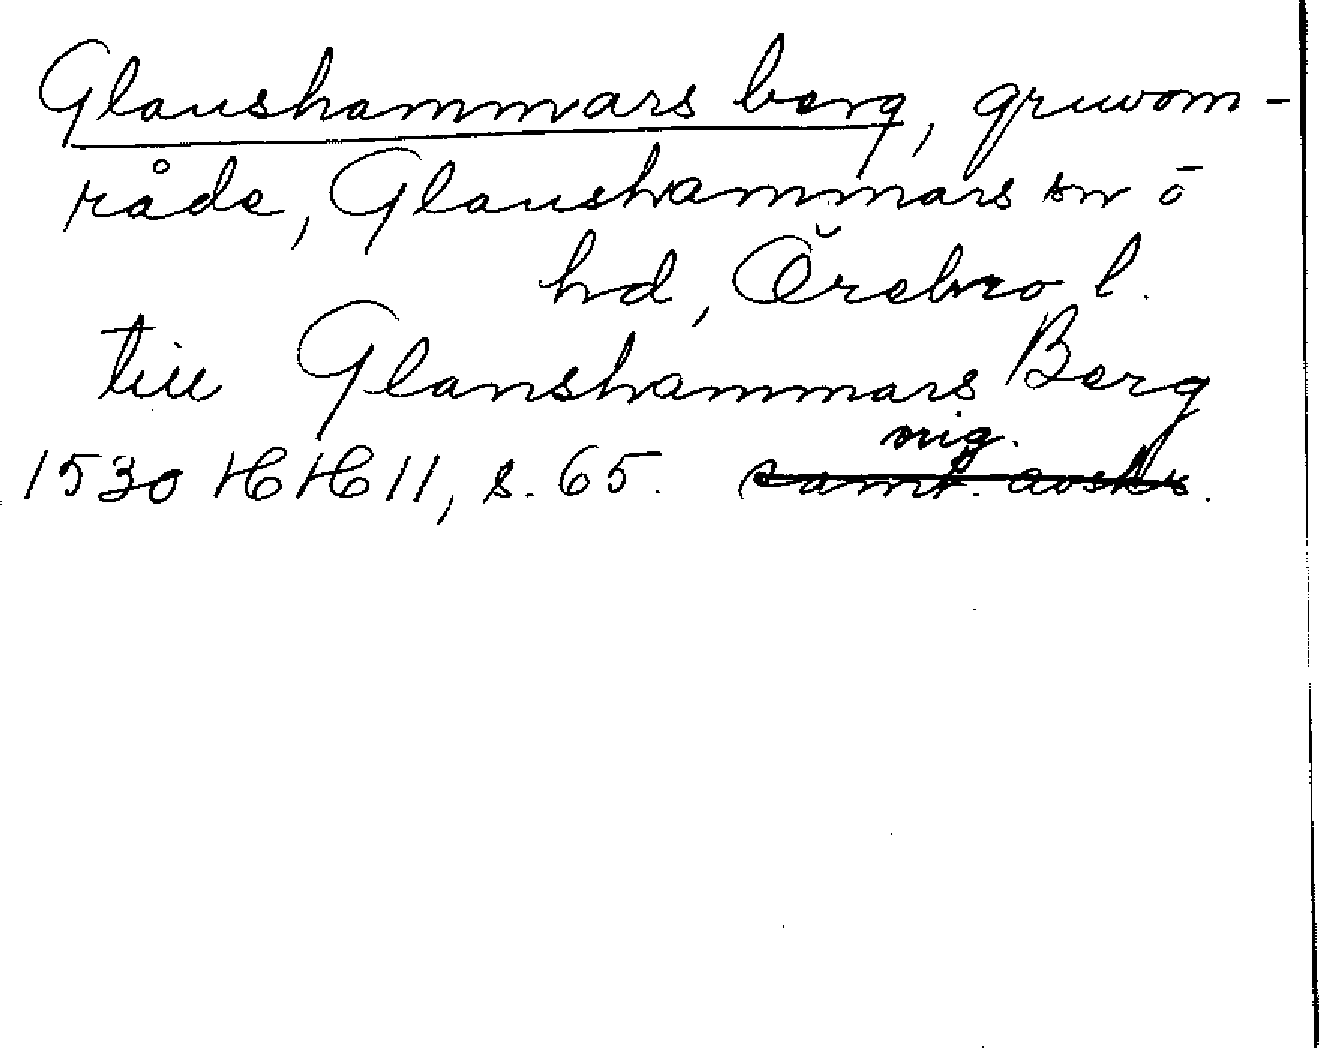 Glanshammars berg, gruvom-
råde, Glanshammars sn o
hd, Örebro l.
till Glanshammars Berg
1530 HH 11, s. 65. samt. avskr.